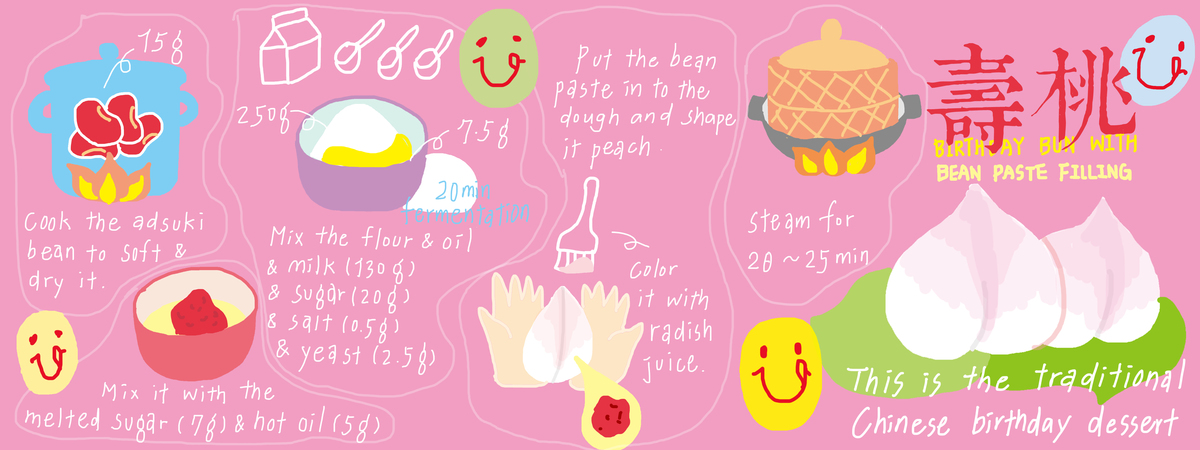 15g
Cook the adsuki
bean to soft &
dry it.
Mix it with the
melted sugar (7g) & hot oil (5g)
250g
7.5g
20min
fermentation
Mix the flour & oil
& milk (130g)
& sugar (20g)
& salt (0.5g)
& yeast (2.5g)
Put the bean
paste in to the
dough and shape
it peach.
Color
it with
radish
juice.
Steam for
20~25min
壽桃
BIRTHDAY BUN WITH
BEAN PASTE FILLING
This is the traditional
Chinese birthday dessert